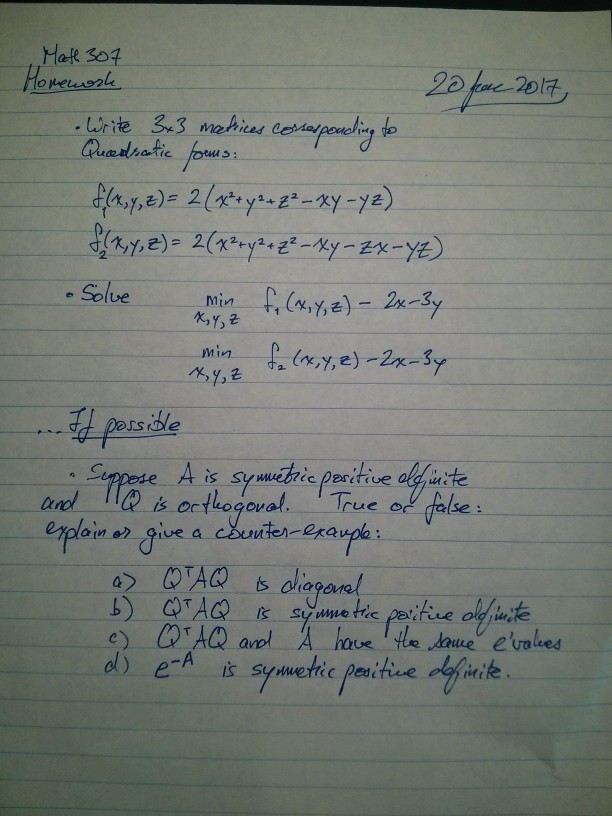 Math 307
Homework
20 June 2017,
• Write 3x3 matrices corresponding to
Quadratic forms:
f₁(x,y,z) = 2(x²+y²+z²-xy-yz)
f₂(x,y,z) = 2(x²+y²+z²-xy-zx-yz)
• Solve min f₁(x,y,z) - 2x-3y
x,y,z
min f₂(x,y,z) - 2x-3y
x,y,z
... If possible
• Suppose A is symmetric positive definite
and Q is orthogonal. True or false:
explain or give a counter-example:
a) QᵀAQ is diagonal
b) QᵀAQ is symmetric positive definite
c) QᵀAQ and A have the same e'values
d) e⁻ᴬ is symmetric positive definite.